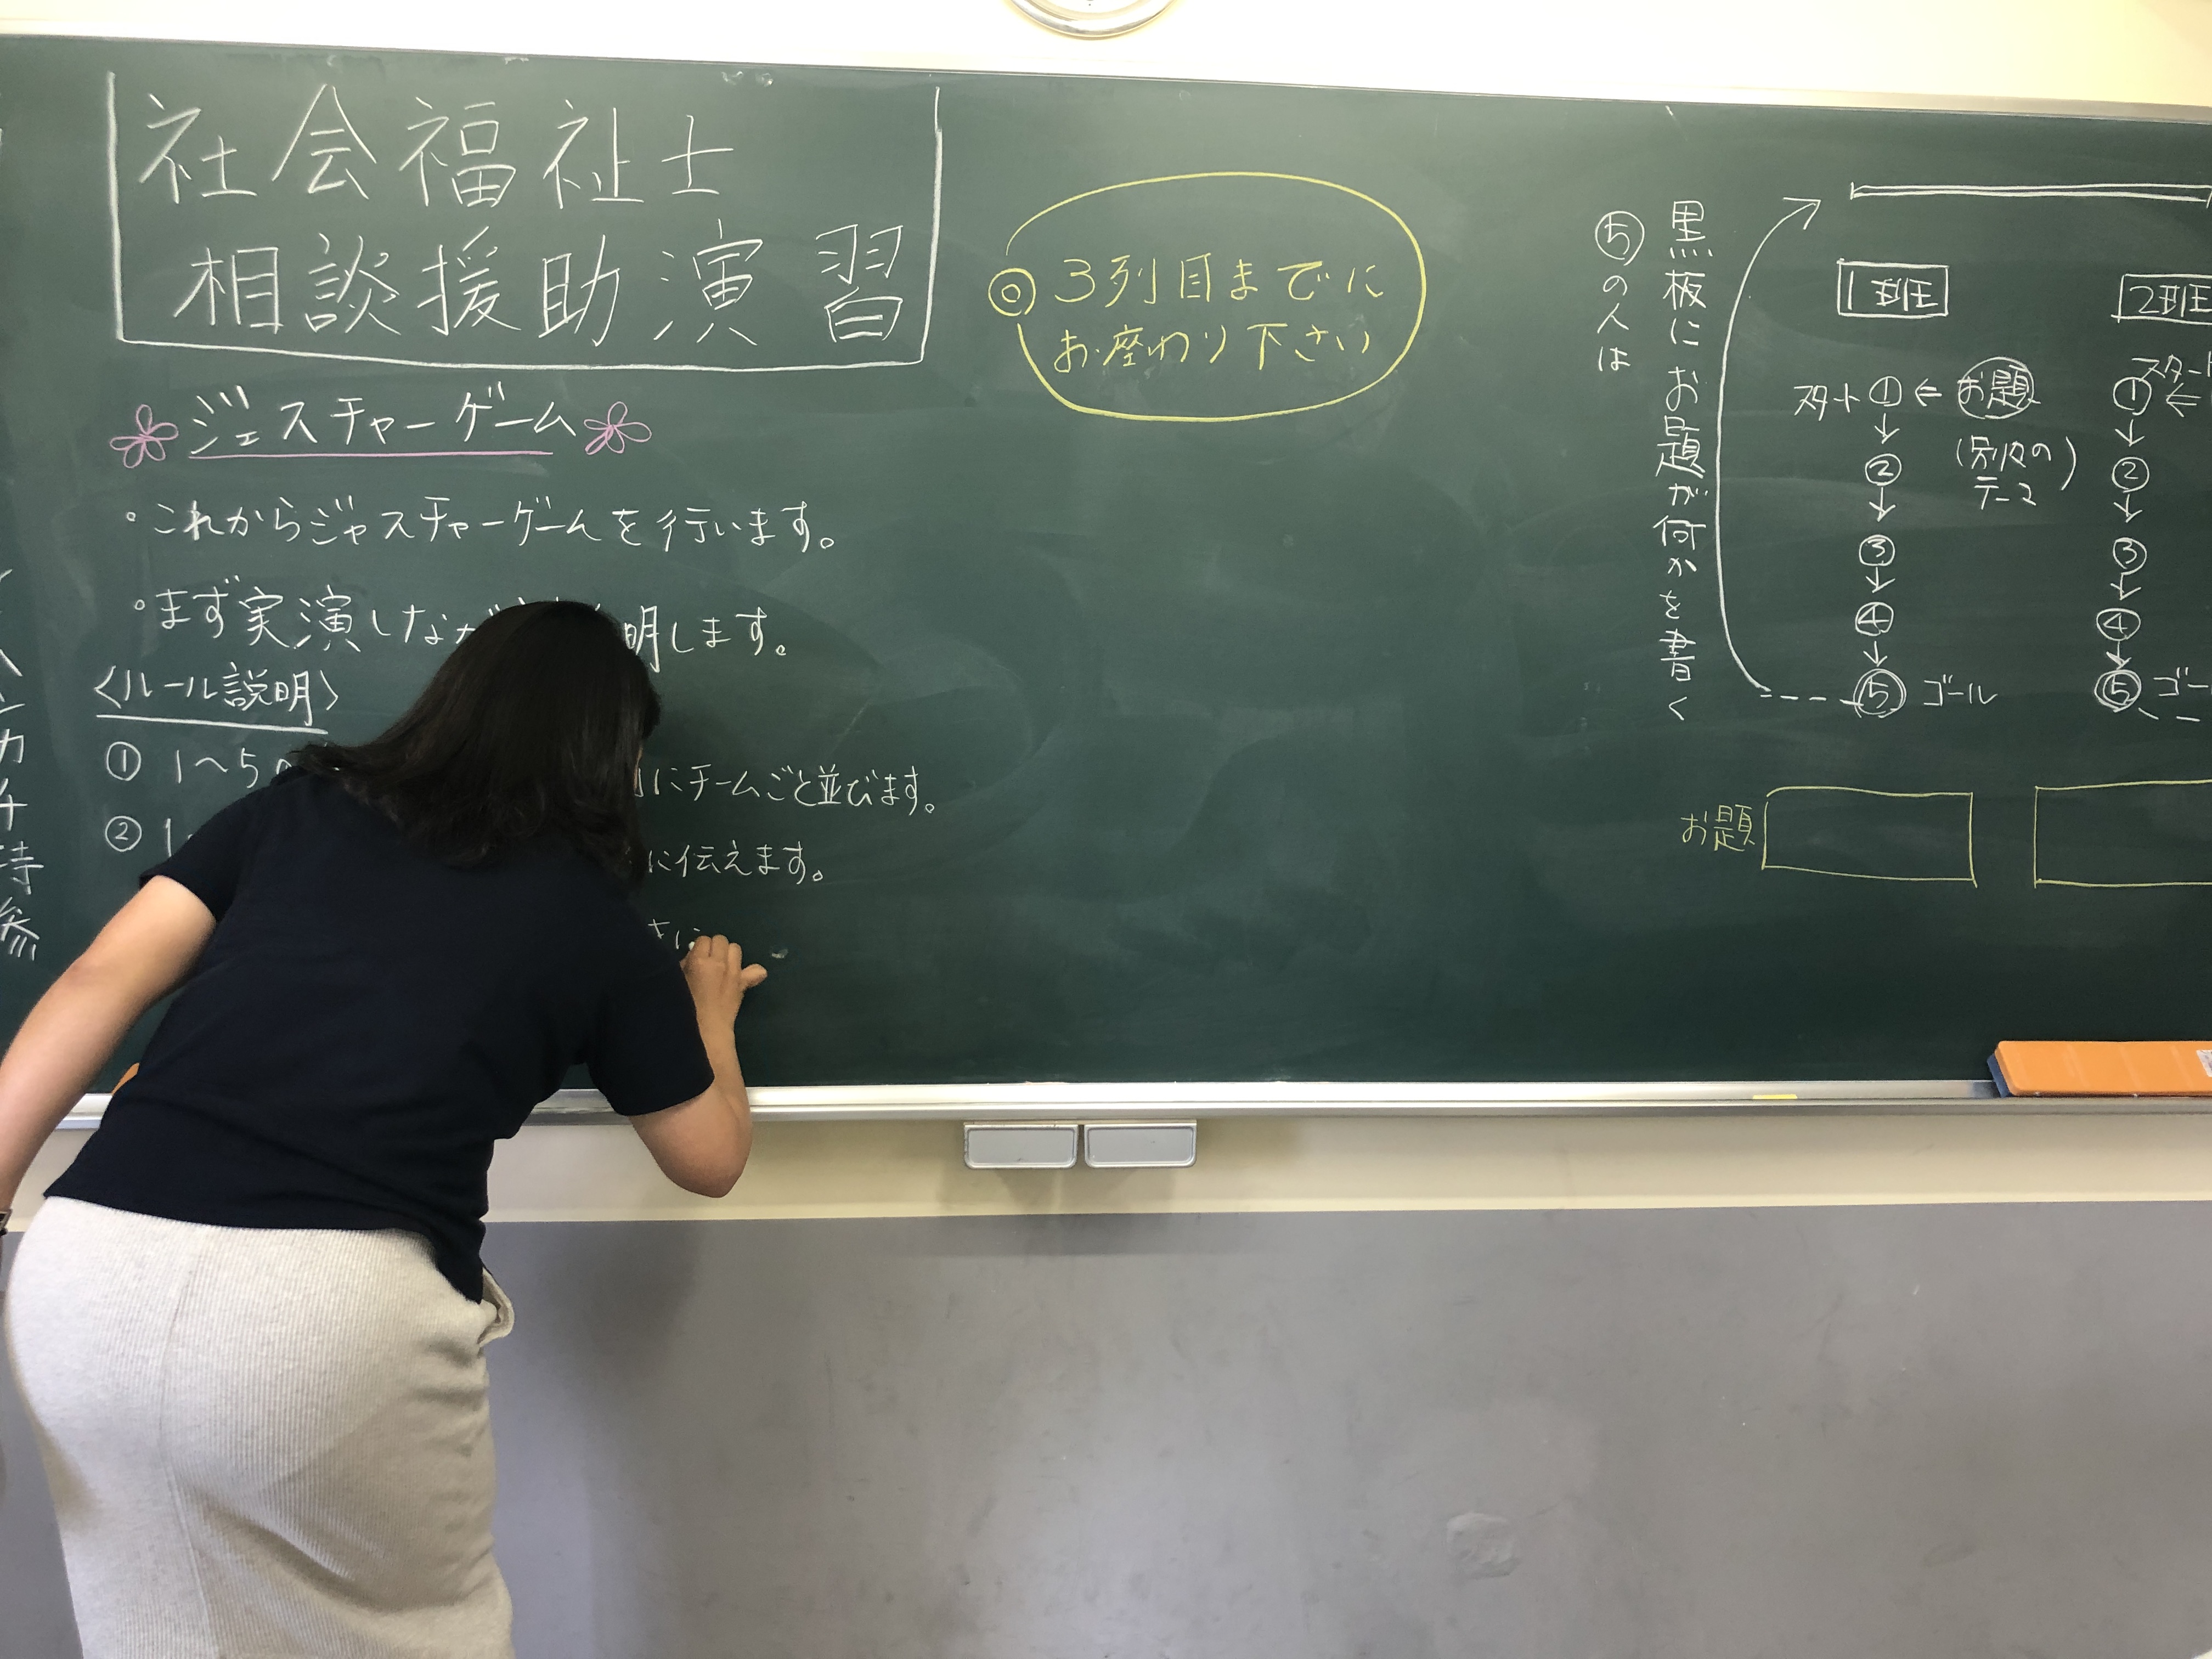 社会福祉士
相談援助演習
ジェスチャーゲーム
・これからジャスチャーゲームを行います。
・まず実演しなが 明します。
〈ルール説明〉
① 1～5の にチームごと並びます。
② 1 に伝えます。
さに
◎ 3列目までに
お座わり下さい
⑤の人は
黒板にお題が何かを書く
1班
スタート ① ⇐ お題
(別々の
テーマ)
↓
②
↓
③
↓
④
↓
⑤ ゴール
2班
スタート
① ⇐
↓
②
↓
③
↓
④
↓
⑤ ゴー
お題